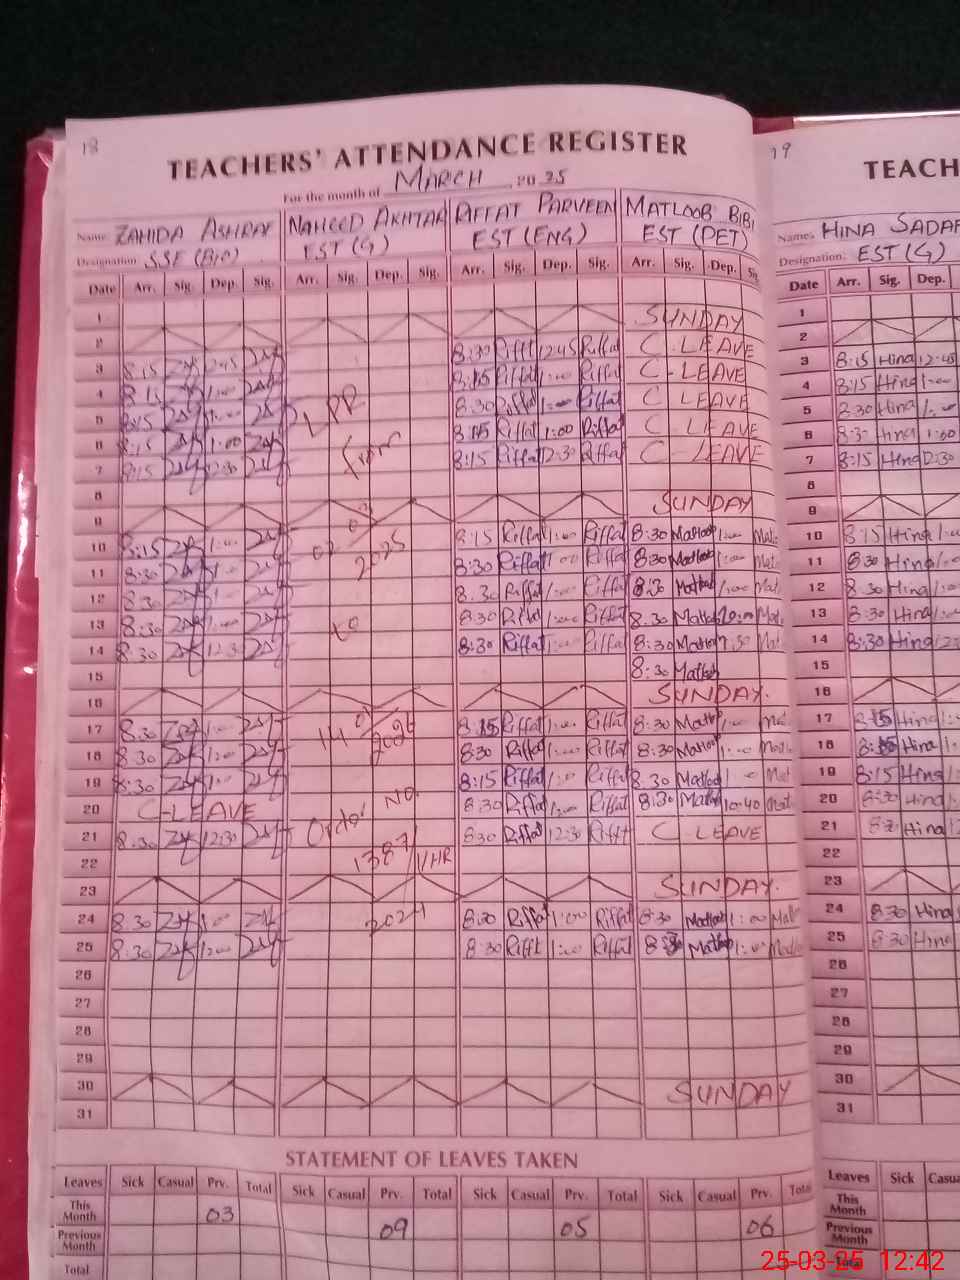 18
TEACHERS' ATTENDANCE REGISTER
For the month of MARCH 2025
Name: ZAHIDA ASHRAF NAHEED AKHTAR RIFFAT PARVEEN MATLOOB BIBI
Designation: SSE (BIO) EST (G) EST (ENG) EST (PET)
Date Arr. Sig. Dep. Sig. Arr. Sig. Dep. Sig. Arr. Sig. Dep. Sig. Arr. Sig. Dep. Sig.
1
2 SUNDAY
3 8:15 12:45 8:30 Riffat 12:45 Riffat C-LEAVE
4 8:15 1:00 8:15 Riffat 1:00 Riffat C-LEAVE
5 8:15 1:00 LPR 8:30 Riffat 1:00 Riffat C LEAVE
6 8:15 1:00 from 8:15 Riffat 1:00 Riffat C LEAVE
7 8:15 12:30 8:15 Riffat 12:30 Riffat C-LEAVE
8
9 SUNDAY
10 8:15 1:00 02 03 8:15 Riffat 1:00 Riffat 8:30 Matloob 1:00 Mat
11 8:30 1:00 2025 8:30 Riffat 1:00 Riffat 8:30 Matloob 1:00 Mat
12 8:30 1:00 8:30 Riffat 1:00 Riffat 8:30 Matloob 1:00 Mat
13 8:30 1:00 to 8:30 Riffat 1:00 Riffat 8:30 Matloob Mat
14 8:30 12:30 8:30 Riffat 1:00 Riffat 8:30 Matloob Mat
15 8:30 Matloob
16 SUNDAY.
17 8:30 1:00 14 8:15 Riffat 1:00 Riffat 8:30 Matloob 1:00 Mat
18 8:30 1:00 2026 8:30 Riffat 1:00 Riffat 8:30 Matloob 1:00 Mat
19 8:30 1:00 8:15 Riffat 1:00 Riffat 8:30 Matloob 1:00 Mat
20 C-LEAVE Order No. 8:30 Riffat 1:00 Riffat 8:30 Matloob 10:40 Mat
21 8:30 12:30 1387/1/HR 8:30 Riffat 12:30 Riffat C-LEAVE
22
23 SUNDAY.
24 8:30 1:00 2024 8:30 Riffat 1:00 Riffat 8:30 Matloob 1:00 Mat
25 8:30 1:00 8:30 Riffat 1:00 Riffat 8:30 Matloob 1:00 Mat
26
27
28
29
30 SUNDAY
31
STATEMENT OF LEAVES TAKEN
Leaves Sick Casual Prv. Total Sick Casual Prv. Total Sick Casual Prv. Total Sick Casual Prv. Total
This Month 03
Previous Month 09 05 06
Total
19
TEACH
Name: HINA SADAF
Designation: EST (G)
Date Arr. Sig. Dep.
1
2
3 8:15 Hina 12:45
4 8:15 Hina 1:00
5 8:30 Hina 1:00
6 8:30 Hina 1:00
7 8:15 Hina 12:30
8
9
10 8:15 Hina 1:00
11 8:30 Hina 1:00
12 8:30 Hina 1:00
13 8:30 Hina 1:00
14 8:30 Hina
15
16
17 8:15 Hina 1:00
18 8:15 Hina 1:00
19 8:15 Hina
20 8:30 Hina
21 Hina
22
23
24 8:30 Hina
25 8:30 Hina
26
27
28
29
30
31
Leaves Sick Casual
This Month
Previous Month
Total
25-03-25 12:42